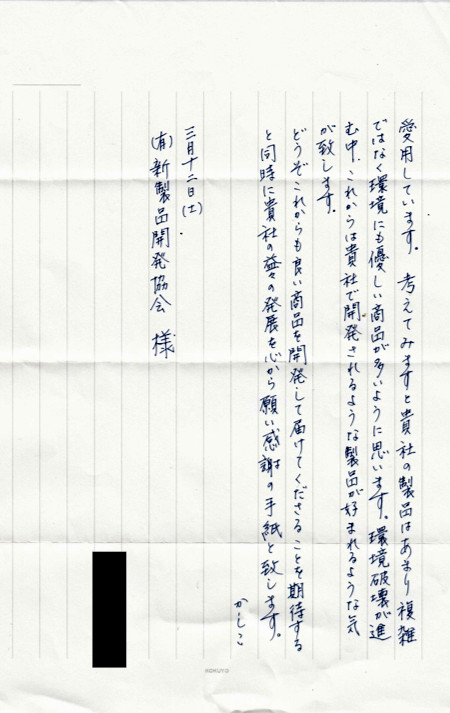 愛用しています。 考えてみますと貴社の製品はあまり複雑
ではなく環境にも優しい商品が多いように思います。環境破壊が進
む中、これからは貴社で開発されるような製品が好まれるような気
が致します。
どうぞこれからも良い商品を開発して届けてくださることを期待する
と同時に貴社の益々の発展を心から願い感謝の手紙と致します。
かしこ
三月十二日(土)
(有)新製品開発協会 様
KOKUYO